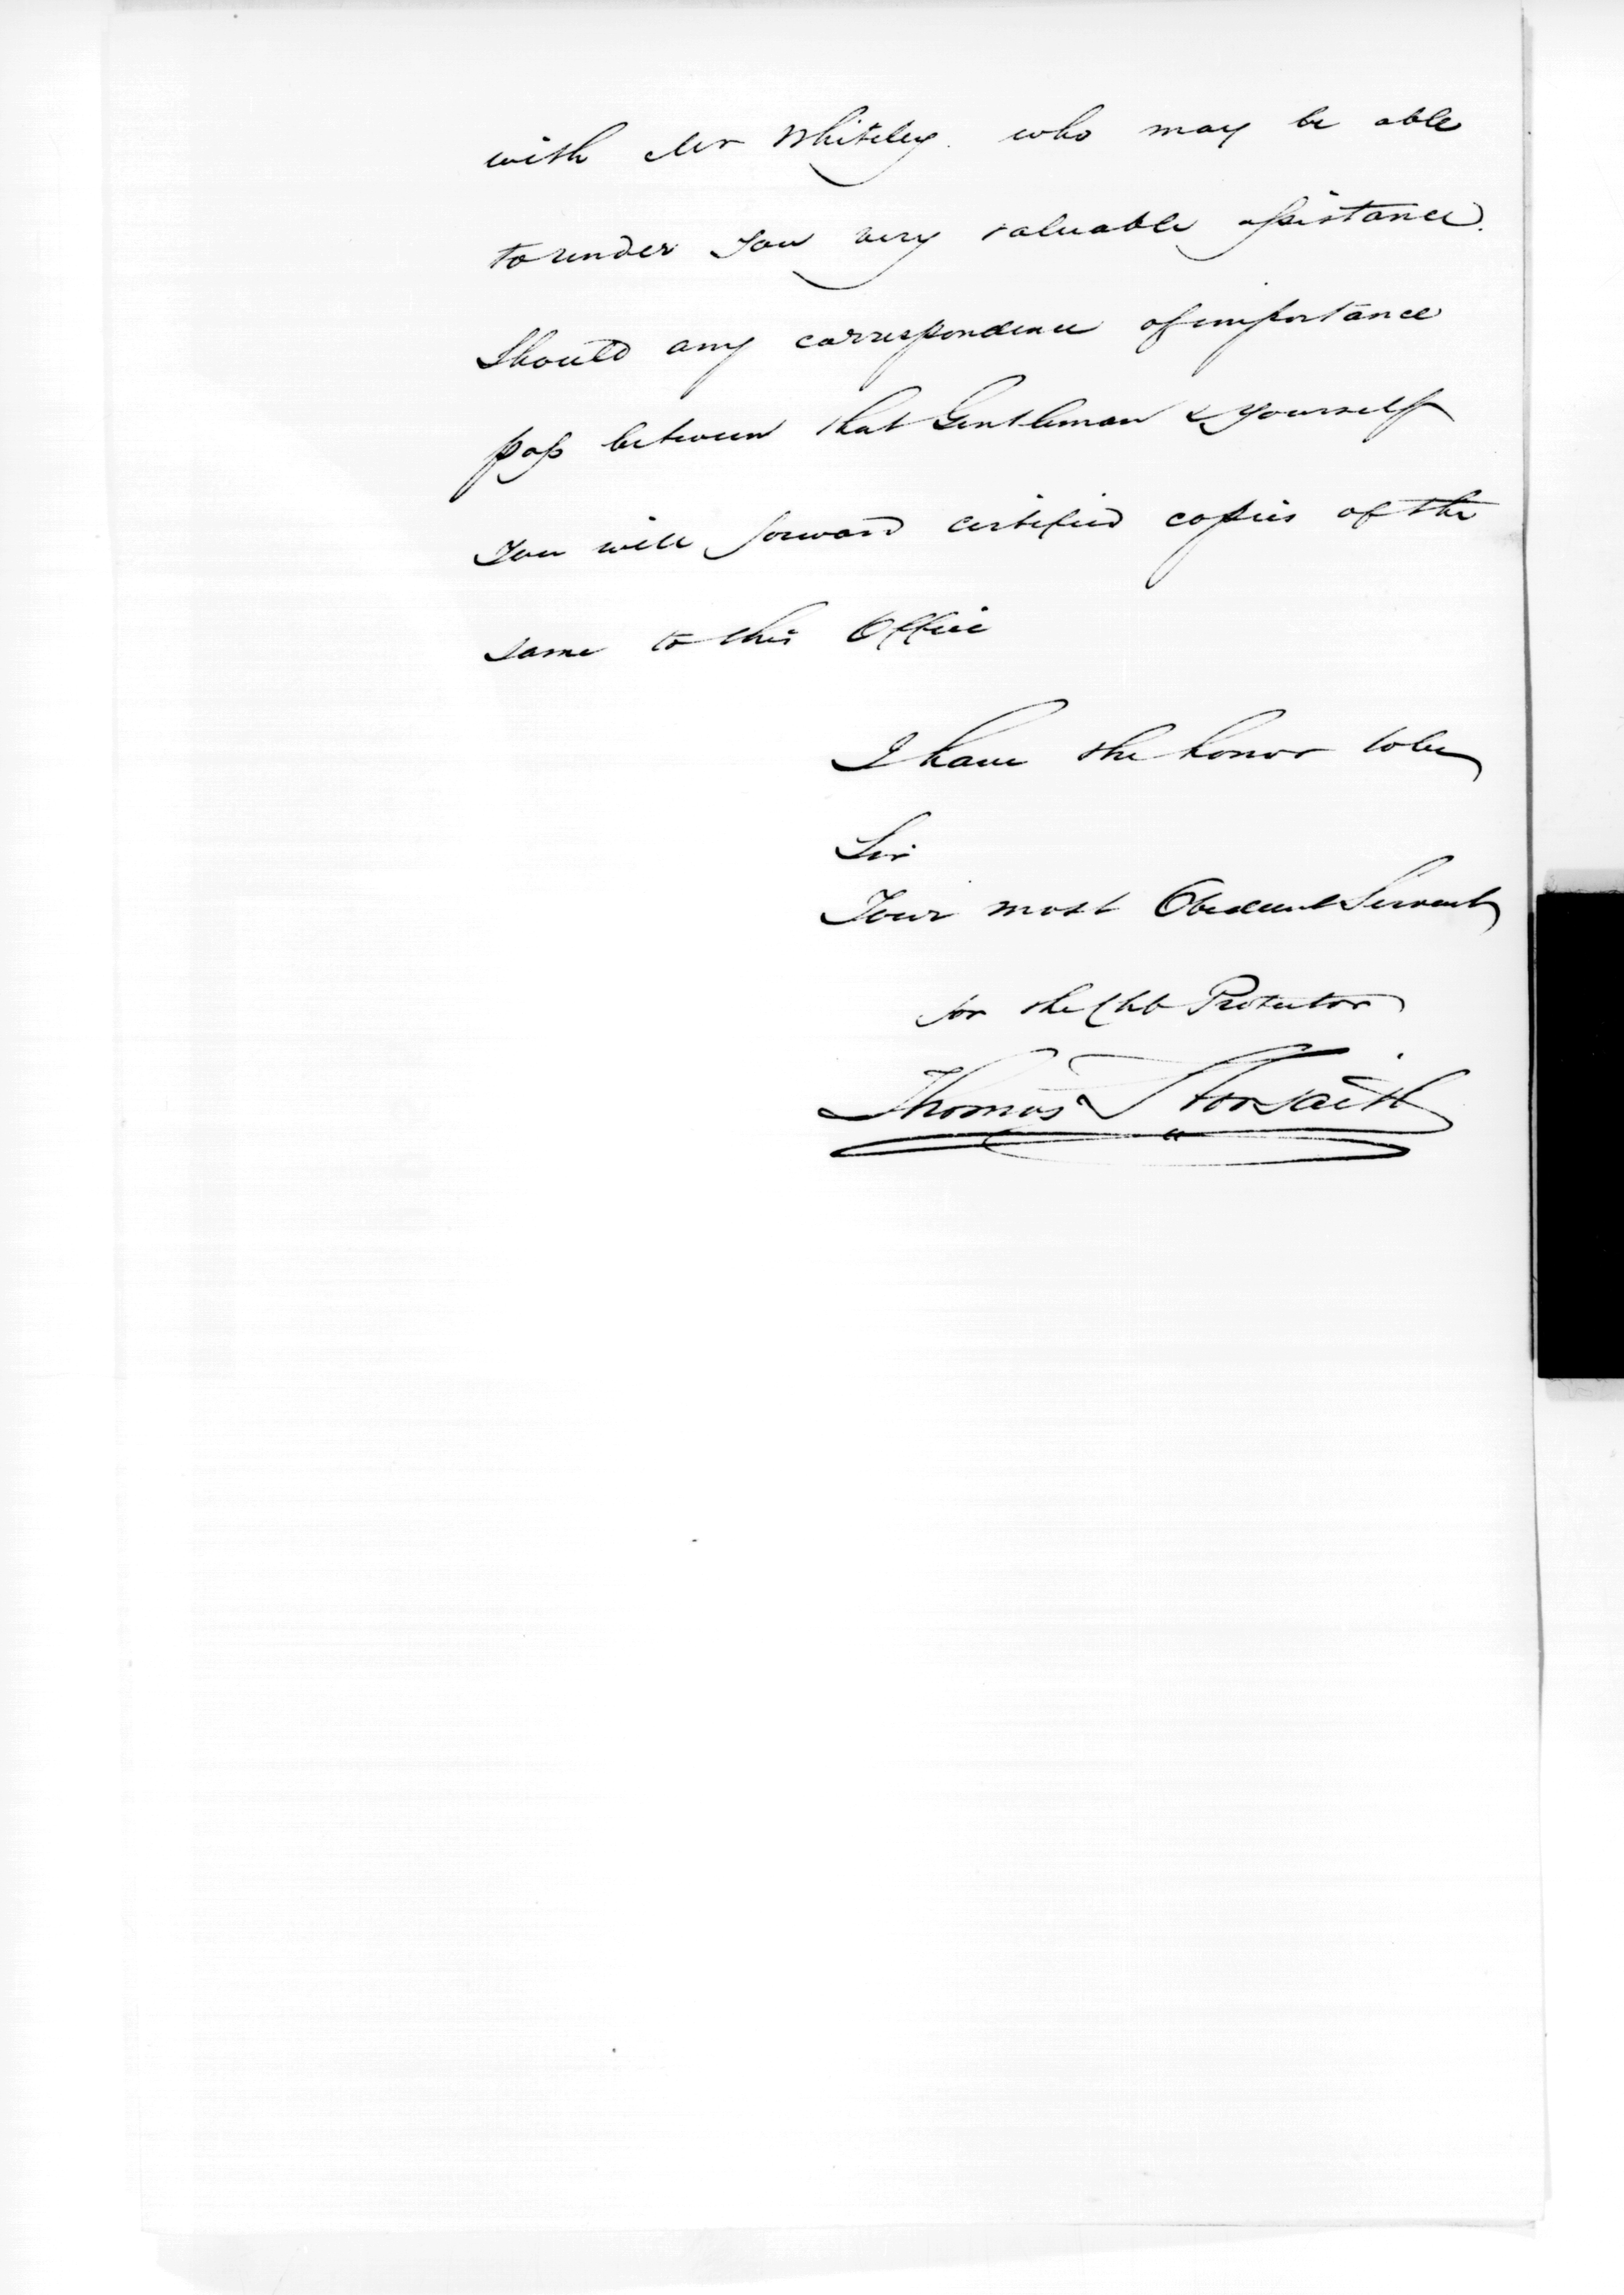 with Mr Whiteley who may be able
to render you very valuable assistance.
Should any correspondence of importance
pass between that Gentleman & yourself
You will forward certified copies of the
same to this Office
I have the honor to be
Sir
Your most Obedient Servant
for the Chf Protector
Thomas S Forsaith